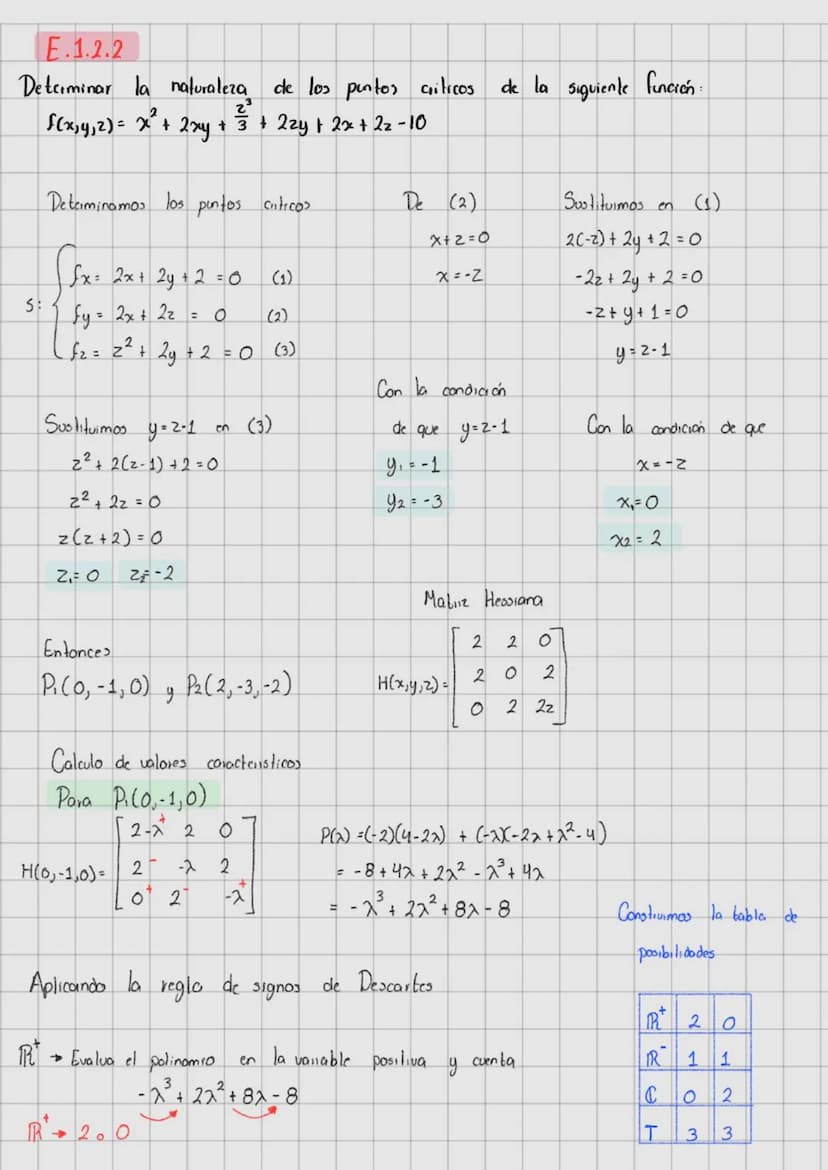 E.1.2.2
Determinar la naturaleza de los puntos criticos de la siguiente función:
f(x,y,z) = x² + 2xy + z³/3 + 2zy + 2x + 2z - 10
Determinamos los puntos criticos
S: { fx = 2x + 2y + 2 = 0 (1)
fy = 2x + 2z = 0 (2)
fz = z² + 2y + 2 = 0 (3)
De (2)
x + z = 0
x = -z
Sustituimos en (1)
2(-z) + 2y + 2 = 0
-2z + 2y + 2 = 0
-z + y + 1 = 0
y = z - 1
Sustituimos y = z-1 en (3)
z² + 2(z-1) + 2 = 0
z² + 2z = 0
z(z+2) = 0
z₁ = 0 z₂ = -2
Con la condición
de que y = z-1
y₁ = -1
y₂ = -3
Con la condición de que
x = -z
x₁ = 0
x₂ = 2
Entonces
P₁(0,-1,0) y P₂(2,-3,-2)
Matriz Hessiana
H(x,y,z) = [ 2 2 0
2 0 2
0 2 2z ]
Calculo de valores caracteristicos
Para P₁(0,-1,0)
H(0,-1,0) = [ 2-λ⁺ 2 0
2⁻ -λ 2
0⁺ 2⁻ -λ⁺ ]
P(λ) = (-2)(4-2λ) + (-λ)(-2λ+λ²-4)
= -8 + 4λ + 2λ² - λ³ + 4λ
= -λ³ + 2λ² + 8λ - 8
Aplicando la regla de signos de Descartes
ℝ⁺ → Evalua el polinomio en la variable positiva y cuenta
-λ³ + 2λ² + 8λ - 8
ℝ⁺ → 2 o 0
Construimos la tabla de
posibilidades
ℝ⁺ 2 0
ℝ⁻ 1 1
ℂ 0 2
T 3 3